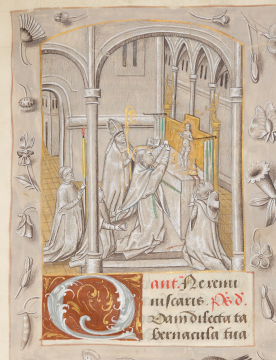 ant. Ne remi
niscaris. Ps. d.
Quam dilecta ta
bernacula tua